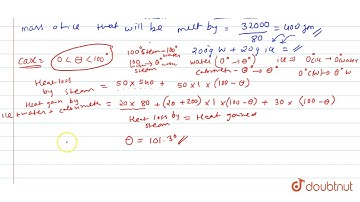 mass of ice that will be melt by = 32000/80 = 400 gm
Case: 0 < θ < 100° 100° steam - 100° water 200g W + 20g ice =
100° → θ° water (0° → θ°) ice ⇒ 0°ice → 0°water
calorimeter - θ° → θ° 0°(W) → θ° W
Heat loss by steam = 50 x 540 + 50 x 1 x (100 - θ)
Heat gain by ice + water + calorimeter = 20 x 80 + (20 + 200) x 1 x (100 - θ) + 30 x (100 - θ)
Heat loss by steam = Heat gained
θ = 101.3°
doubtnut